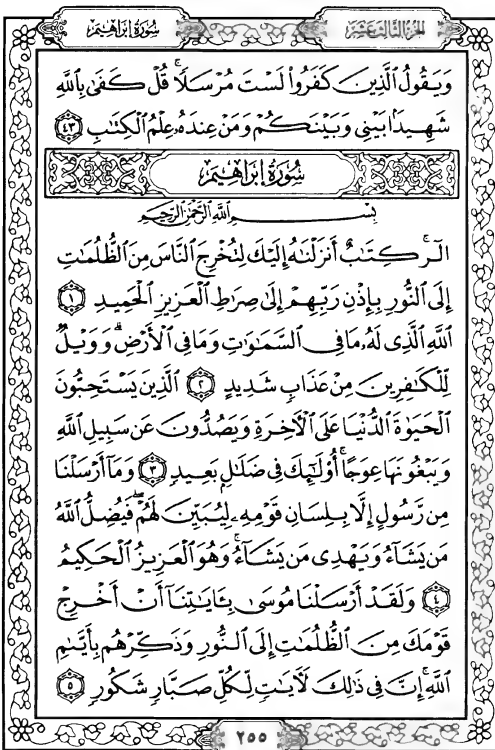 الجزء الثالث عشر
سورة إبراهيم
وَيَقُولُ ٱلَّذِينَ كَفَرُوا۟ لَسْتَ مُرْسَلًا ۚ قُلْ كَفَىٰ بِٱللَّهِ
شَهِيدًۢا بَيْنِى وَبَيْنَكُمْ وَمَنْ عِندَهُۥ عِلْمُ ٱلْكِتَـٰبِ ٤٣
سُورَةُ إِبْرَاهِيمَ
بِسْمِ ٱللَّهِ ٱلرَّحْمَـٰنِ ٱلرَّحِيمِ
الٓر ۚ كِتَـٰبٌ أَنزَلْنَـٰهُ إِلَيْكَ لِتُخْرِجَ ٱلنَّاسَ مِنَ ٱلظُّلُمَـٰتِ
إِلَى ٱلنُّورِ بِإِذْنِ رَبِّهِمْ إِلَىٰ صِرَٰطِ ٱلْعَزِيزِ ٱلْحَمِيدِ ١
ٱللَّهِ ٱلَّذِى لَهُۥ مَا فِى ٱلسَّمَـٰوَٰتِ وَمَا فِى ٱلْأَرْضِ ۗ وَوَيْلٌ
لِّلْكَـٰفِرِينَ مِنْ عَذَابٍ شَدِيدٍ ٢ ٱلَّذِينَ يَسْتَحِبُّونَ
ٱلْحَيَوٰةَ ٱلدُّنْيَا عَلَى ٱلْـَٔاخِرَةِ وَيَصُدُّونَ عَن سَبِيلِ ٱللَّهِ
وَيَبْغُونَهَا عِوَجًا ۚ أُو۟لَـٰٓئِكَ فِى ضَلَـٰلٍۭ بَعِيدٍ ٣ وَمَآ أَرْسَلْنَا
مِن رَّسُولٍ إِلَّا بِلِسَانِ قَوْمِهِۦ لِيُبَيِّنَ لَهُمْ ۖ فَيُضِلُّ ٱللَّهُ
مَن يَشَآءُ وَيَهْدِى مَن يَشَآءُ ۚ وَهُوَ ٱلْعَزِيزُ ٱلْحَكِيمُ
٤ وَلَقَدْ أَرْسَلْنَا مُوسَىٰ بِـَٔايَـٰتِنَآ أَنْ أَخْرِجْ
قَوْمَكَ مِنَ ٱلظُّلُمَـٰتِ إِلَى ٱلنُّورِ وَذَكِّرْهُم بِأَيَّىٰمِ
ٱللَّهِ ۚ إِنَّ فِى ذَٰلِكَ لَـَٔايَـٰتٍ لِّكُلِّ صَبَّارٍ شَكُورٍ ٥
٢٥٥